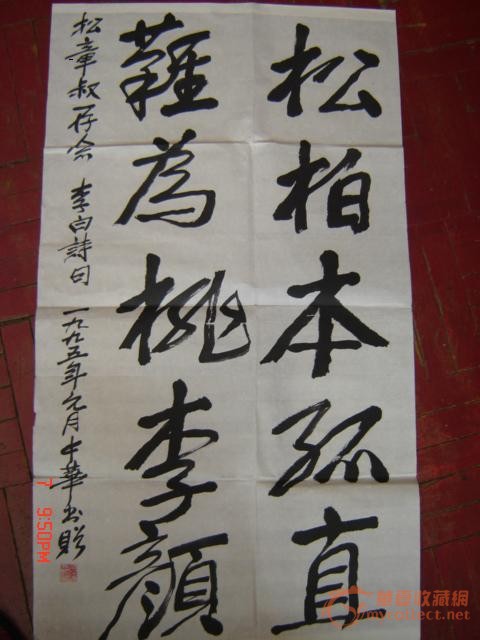 松柏本孤直
難為桃李顔
松章叔存念 李白詩句 一九九五年元月中華书贈
7 9:50PM
收藏網
mycollect.net